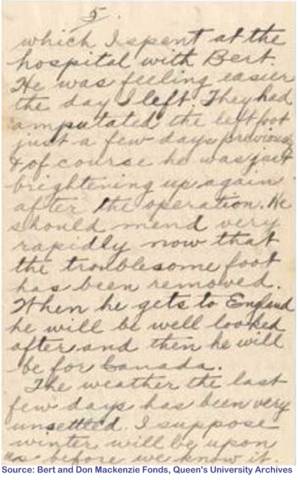 5.
which I spent at the
hospital with Bert.
He was feeling easier
the day I left. They had
amputated the left foot
just a few days previous
& of course he was just
brightening up again
after the operation. He
should mend very
rapidly now that
the troublesome foot
has been removed.
When he gets to England
he will be well looked
after and then he will
be for Canada.
The weather the last
few days has been very
unsettled. I suppose
winter will be upon
us before we know it.
Source: Bert and Don Mackenzie Fonds, Queen's University Archives